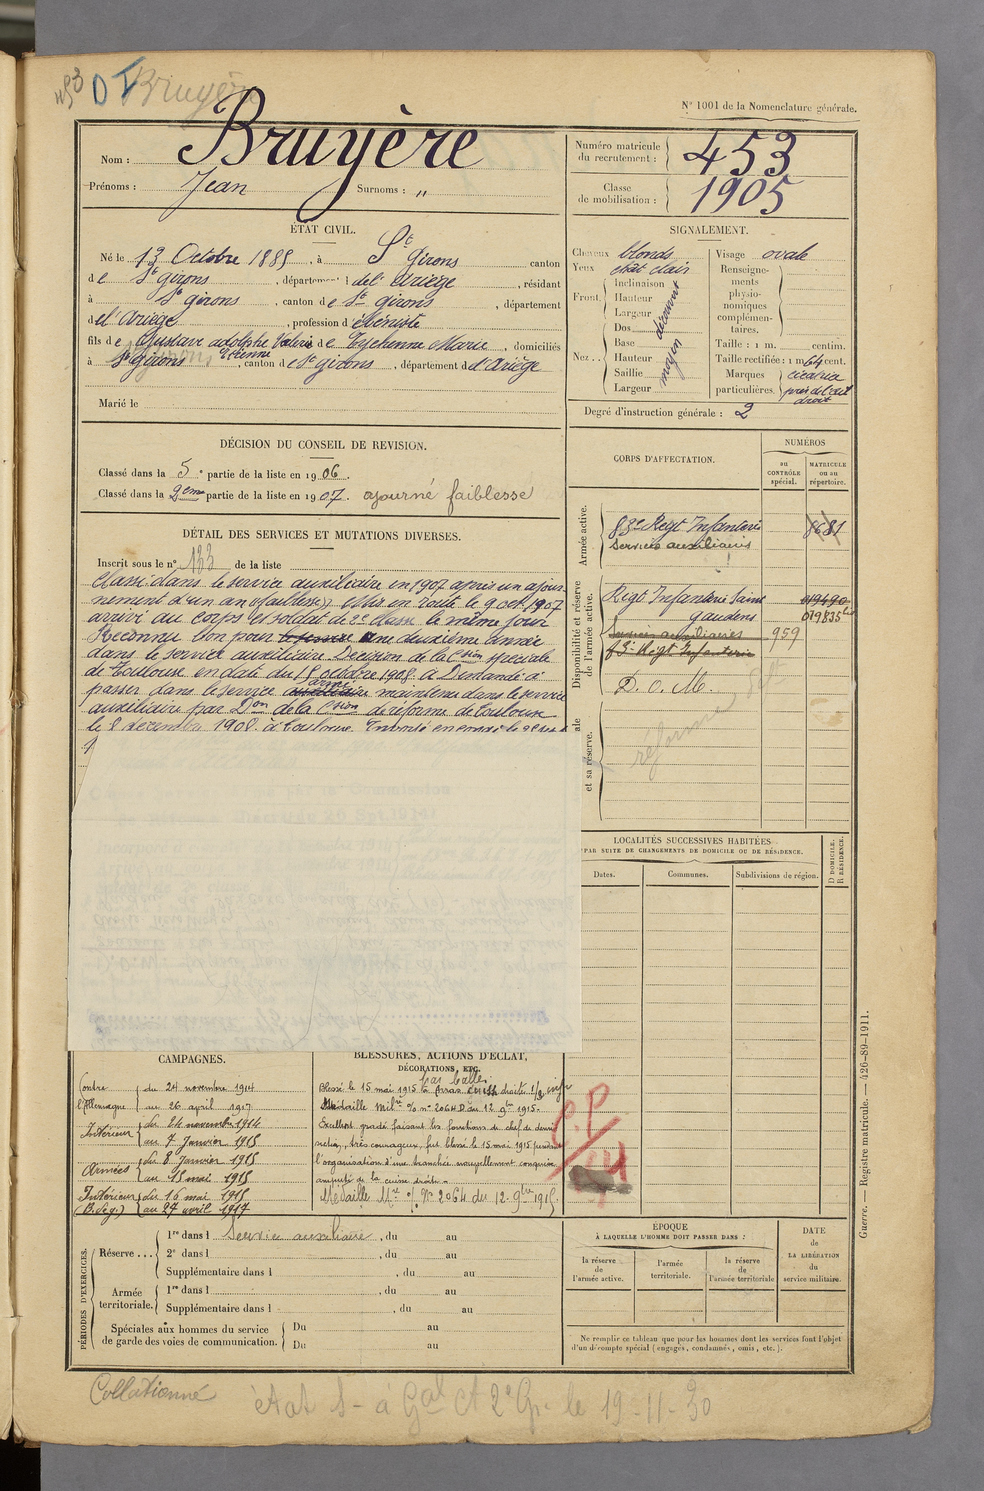 453 Bruyère
N° 1001 de la Nomenclature générale.
Nom : Bruyère
Prénoms : Jean Surnoms : "
Numéro matricule du recrutement : 453
Classe de mobilisation : 1905
ÉTAT CIVIL.
Né le 13 Octobre 1885, à St Girons canton
de St Girons, département de l'Ariège, résidant
à St Girons, canton de St Girons, département
de l'Ariège, profession d'ébéniste
fils de Gustave Adolphe Valerie Etienne et de Marie, domiciliés
à St Girons, canton de St Girons, département de l'Ariège
Marié le
SIGNALEMENT.
Cheveux blonds
Yeux chât clair
Front
Inclinaison
Hauteur
Largeur
découvert
Nez
Dos
Base
Hauteur
Saillie
Largeur
moyen
Visage ovale
Renseignements physionomiques complémentaires.
Taille : 1 m. centim.
Taille rectifiée : 1 m 64 cent.
Marques particulières. cicatrice près de l'œil droit
Degré d'instruction générale : 2
DÉCISION DU CONSEIL DE REVISION.
Classé dans la 5e partie de la liste en 1906.
Classé dans la 2eme partie de la liste en 1907. ajourné faiblesse
DÉTAIL DES SERVICES ET MUTATIONS DIVERSES.
Inscrit sous le n° 133 de la liste
Classé dans le service auxiliaire en 1907 après un ajour-
nement d'un an (faiblesse) Mis en route le 9 oct. 1907
arrivé au corps et soldat de 2e classe le même jour
Reconnu bon pour le service une deuxième année
dans le service auxiliaire Décision de la Csion spéciale
de Toulouse en date du 15 octobre 1908. a Demandé à
passer dans le service auxiliaire armé maintenu dans le service
auxiliaire par Don de la Csion de réforme de Toulouse
le 8 décembre 1908 à Toulouse. Envoyé en congé le
CORPS D'AFFECTATION.
NUMÉROS
au CONTRÔLE spécial.
MATRICULE ou au répertoire.
Armée active.
83e Régt Infanterie 8681
Services auxiliaires
Disponibilité et réserve de l'armée active.
Régt Infanterie Saint 019490
Gaudens 019835
Services auxiliaires 959
Régt Infanterie
D. o. M.
réformé
et sa réserve.
LOCALITÉS SUCCESSIVES HABITÉES
PAR SUITE DE CHANGEMENTS DE DOMICILE OU DE RÉSIDENCE.
Dates.
Communes.
Subdivisions de région.
D DOMICILE.
R RÉSIDENCE.
CAMPAGNES.
Contre l'Allemagne du 24 novembre 1914
au 26 avril 1917
Intérieur du 24 novembre 1914
au 7 Janvier 1915
Armées du 8 Janvier 1915
au 15 mai 1915
Intérieur du 16 mai 1915
(B. Ség.) au 27 avril 1917
BLESSURES, ACTIONS D'ÉCLAT,
DÉCORATIONS, ETC.
Blessé le 15 mai 1915 à Arras par balle cuisse droite 1/3 infr
Médaille Milre O/ n° 2064 D du 12 9bre 1915.
Excellent gradé faisant les fonctions de chef de demi
section, très courageux, fut blessé le 15 mai 1915 pendant
l'organisation d'une tranchée nouvellement conquise
amputé de la cuisse droite.
Médaille Mre O/ N° 2064 du 12-9bre 1915.
C.P
PÉRIODES D'EXERCICES.
Réserve...
1re dans l Service auxiliaire, du au
2e dans l , du au
Supplémentaire dans l , du au
Armée territoriale.
1re dans l , du au
Supplémentaire dans l , du au
Spéciales aux hommes du service de garde des voies de communication.
Du au
Du au
ÉPOQUE
À LAQUELLE L'HOMME DOIT PASSER DANS :
la réserve de l'armée active.
l'armée territoriale.
la réserve de l'armée territoriale
DATE de LA LIBÉRATION du service militaire.
Ne remplir ce tableau que pour les hommes dont les services font l'objet
d'un décompte spécial (engagés, condamnés, omis, etc.).
Guerre. — Registre matricule. — 426-89-1911.
Collationné
état S- à Gal Ct 2e Gp- le 19-11-30